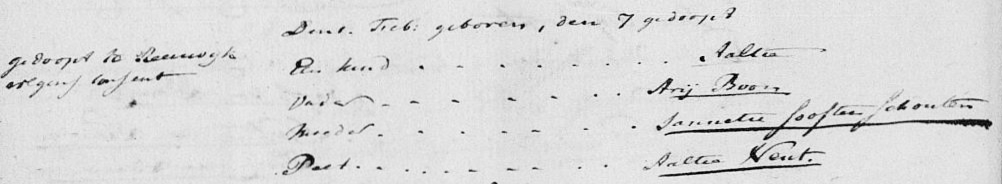 Dent. Feb: geboren, den 7 gedoopt
gedoopt te Reeuwyk
volgens consent
Een kind - - - - - - - Aaltie
Vader - - - - - - - Arij Boon
Moeder - - - - - - - Jannetie Joosten Schouten
Peet. - - - - - - - Aaltie Vent.